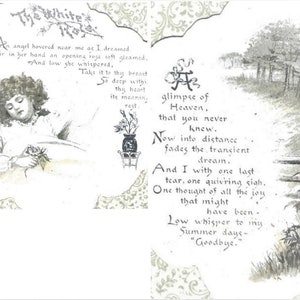 The White Rose.
An angel hovered near me as I dreamed
in her hand an opening rose soft gleamed,
And low she whispered,
Take it to thy breast
So deep within
thy heart
its meaning
rest.
A
glimpse of
Heaven,
that you never
knew.
Now into distance
fades the transient
dream.
And I with one last
tear, one quivering sigh,
One thought of all the joy
that might
have been.
Low whisper to my
Summer days-
"Goodbye."